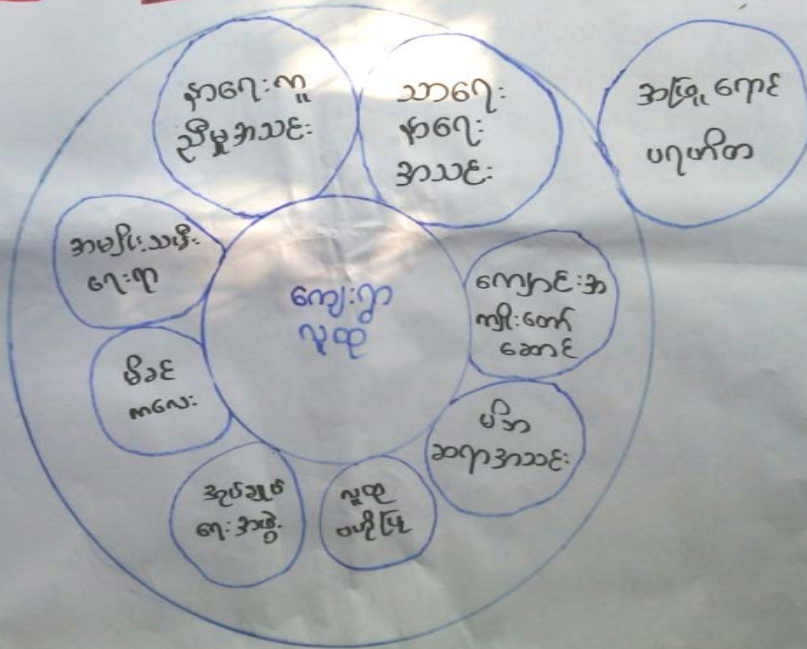 နာရေးကူ
ညီမှုအသင်း
သာရေး
နာရေး
အသင်း
အဖြူရောင်
ပရဟိတ
အမျိုးသမီး
ရေးရာ
ကျေးရွာ
လူထု
ကျောင်းအ
ကျိုးတော်
ဆောင်
မိခင်
ကလေး
မိဘ
ဆရာအသင်း
အုပ်ချုပ်
ရေးအဖွဲ့
လူထု
ဗဟိုပြု